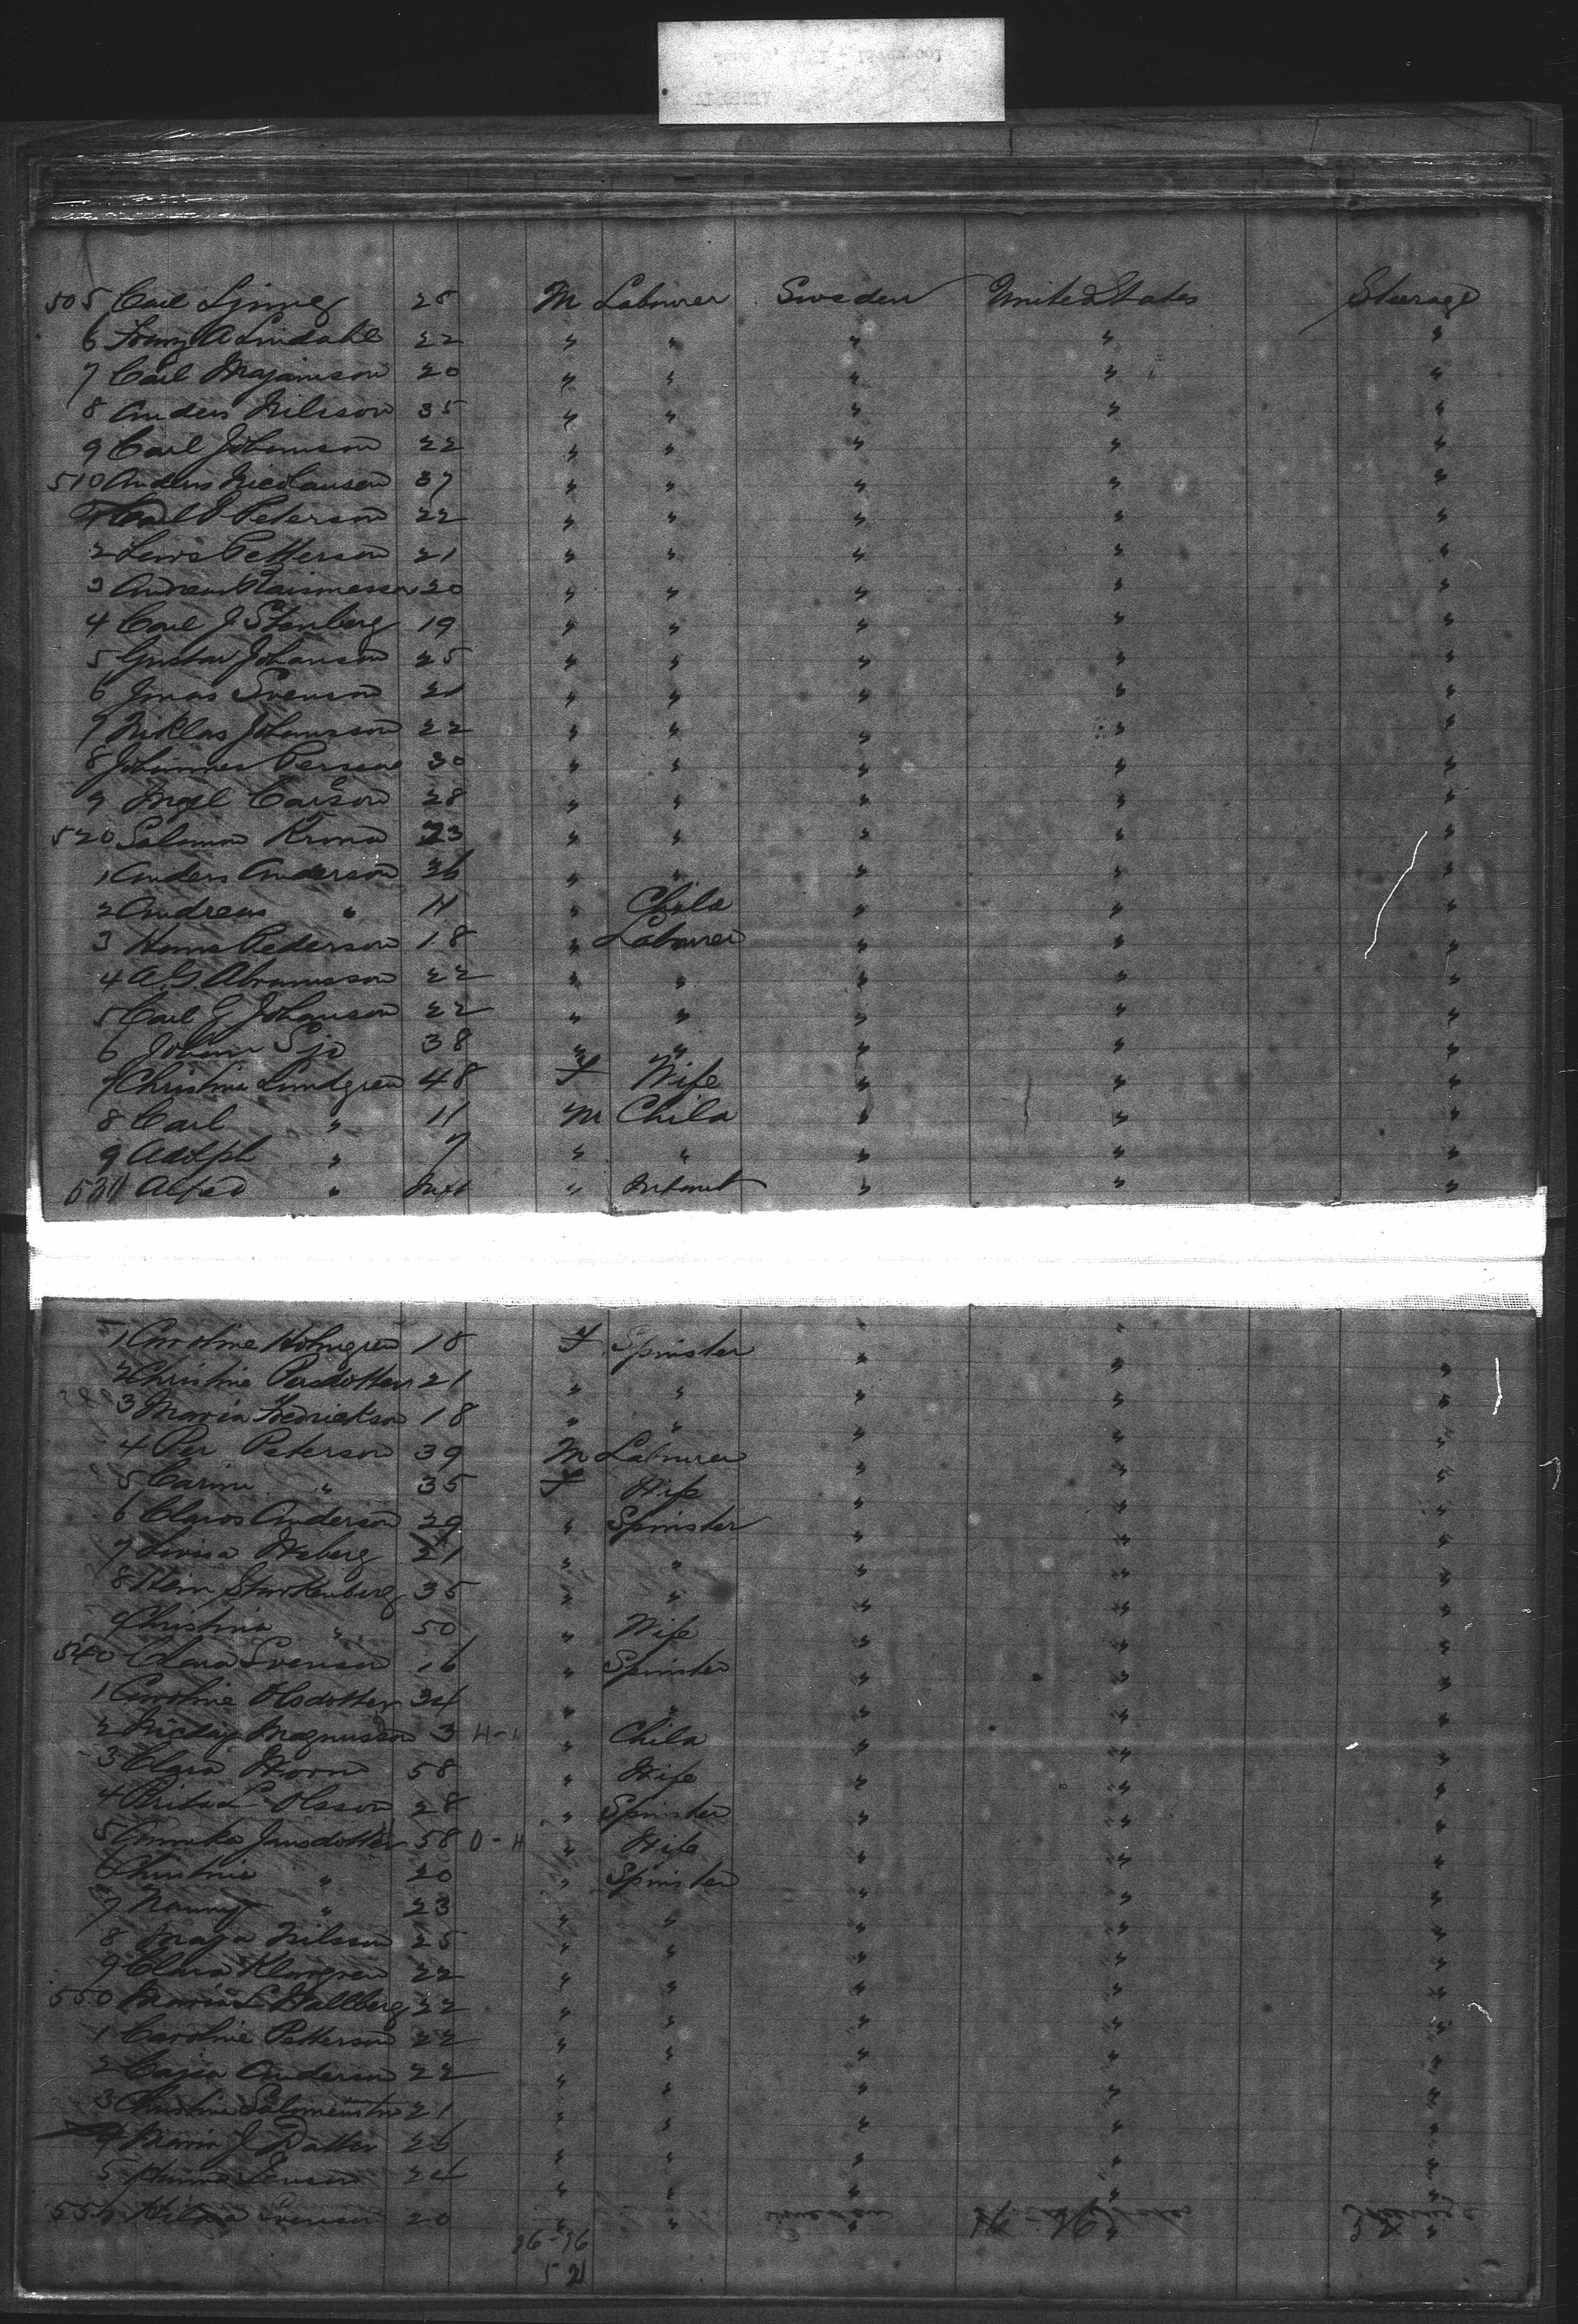 505 Carl Ljung 28 M Labourer Sweden United States Steerage
6 Franz A Lindahl 22 " " " " "
7 Carl Majainson 20 " " " " "
8 Anders Nilsson 35 " " " " "
9 Carl Johanson 22 " " " " "
510 Anders Nicolausen 37 " " " " "
1 Carl J Peterson 22 " " " " "
2 Lewis Petterson 21 " " " " "
3 Andreas 20 " " " " "
4 Carl J Stenberg 19 " " " " "
5 Gustav Johanson 25 " " " " "
6 Jonas Svenson 21 " " " " "
7 Niklas Johansson 22 " " " " "
8 Johannes Persson 30 " " " " "
9 Carlson 28 " " " " "
520 Salomon Krona 23 " " " " "
1 Anders Anderson 36 " " " " "
2 Andreas " 11 " Child " " "
3 Hans Pederson 18 " Labourer " " "
4 A.G. Abramsson 22 " " " " "
5 Carl G Johanson 22 " " " " "
6 Johan Sjo 38 " " " " "
7 Christine Lundgren 48 F Wife " " "
8 Carl " 11 M Child " " "
9 Adolph " 7 " " " " "
530 Alfred " Inft " Infant " " "
1 Caroline Holmgren 18 F Spinster " " "
2 Christine Persdotter 21 " " " " "
3 Maria Fredrickson 18 " " " " "
4 Per Peterson 39 M Labourer " " "
5 Carine " 35 F Wife " " "
6 Claros Anderson 29 " Spinster " " "
7 Lovisa 21 " " " " "
8 35 " " " " "
9 Christina " 50 " Wife " " "
540 Clara Svenson 16 " Spinster " " "
1 Caroline Olsdotter 34 " " " " "
2 Magnusson 3 " Child " " "
3 Clara 58 " Wife " " "
4 Brita L Olsson 28 " Spinster " " "
5 Annika Jansdotter 58 " Wife " " "
6 Christine " 20 " Spinster " " "
7 Nanny " 23 " " " " "
8 Maja Nilsson 25 " " " " "
9 Clara 22 " " " " "
550 Maria L Hallberg 22 " " " " "
1 Caroline Petterson 22 " " " " "
2 Cajsa Anderson 22 " " " " "
3 Christine 21 " " " " "
4 Maria J Datter 26 " " " " "
5 Hanna 24 " " " " "
556 Hilma Svenson 20 " " " " "